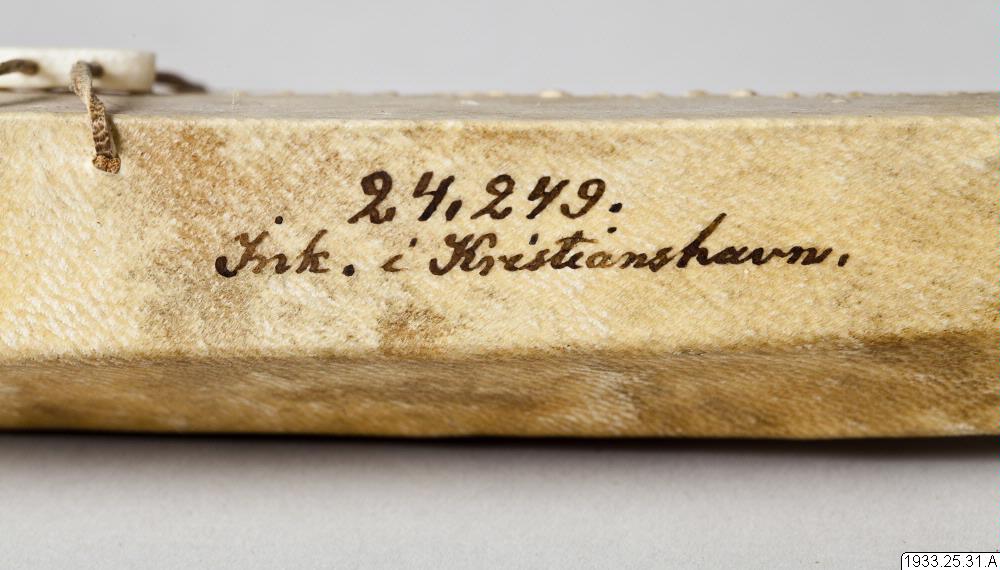 24,249.
Ink. i Kristianshavn.
1933.25.31.A